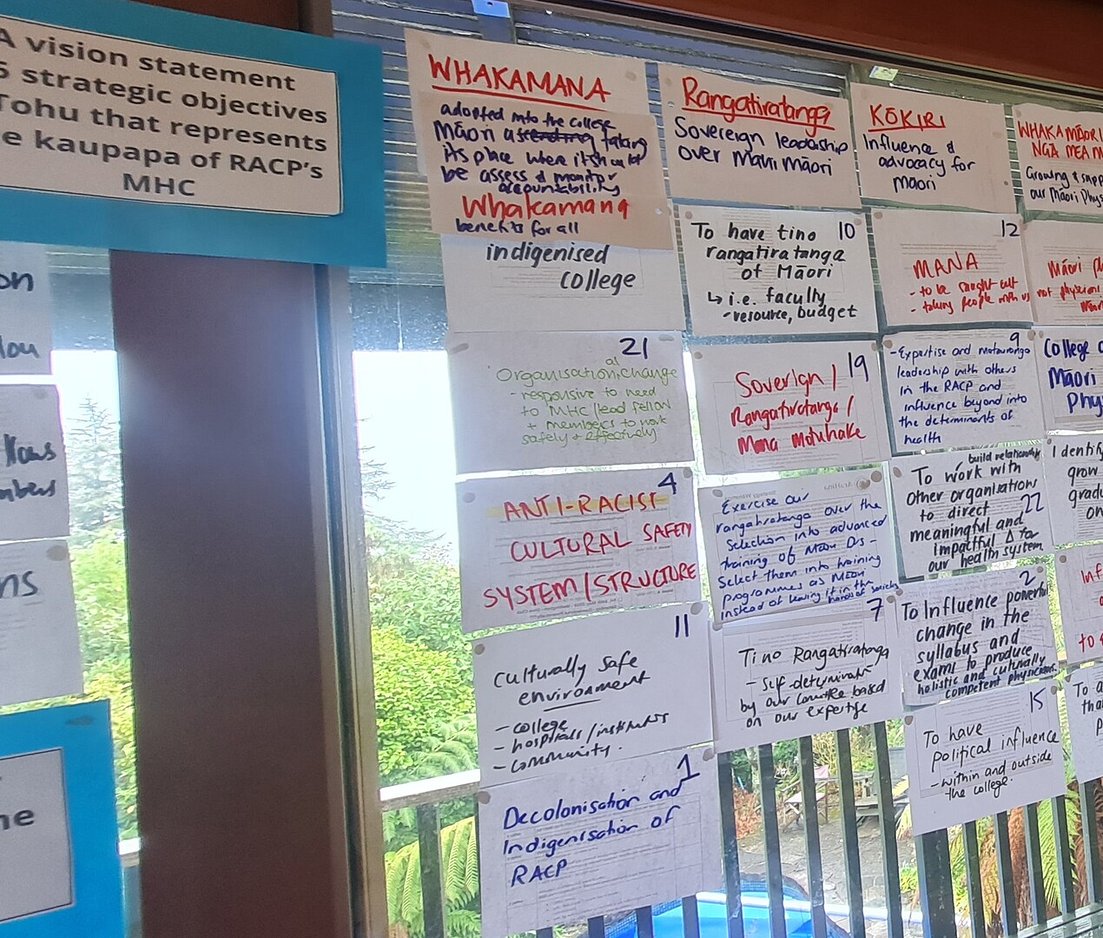 A vision statement
5 strategic objectives
Tohu that represents
e kaupapa of RACP's
MHC
on
lou
llows
mbers
ns
he
WHAKAMANA
adopted into the college
Māori ascending taking
its place where it should
be assess & monitor
accountability
Whakamana
benefits for all
indigenised
college
21
al
Organisation change
- responsive to need
to MHC/lead fellow
+ members to work
safely + effectively
4
ANTI-RACIST
CULTURAL SAFETY
SYSTEM/STRUCTURE
11
Culturally safe
environment
- college
- hospitals/institutes
- community.
1
Decolonisation and
Indigenisation of
RACP
Rangatiratanga
Sovereign leadership
over Māori Māori
10
To have tino
rangatiratanga
of Māori
↳ i.e. faculty
- resource, budget
19
Soverign/
Rangatiratanga/
Mana Motuhake
Exercise our
rangatiratanga over the
Selection into advanced
training of Māori Drs -
Select them into training
programmes as Māori
instead of leaving it in the
hands of
7
Tino Rangatiratanga
- Self-determination
by our committee based
on our expertise
KŌKIRI
Influence &
advocacy for
māori
12
MANA
- to be sought out
- taking people with us
9
- Expertise and matauranga
leadership with others
in the RACP and
influence beyond into
the determinants of
health
build relationship
To work with
other organisations
to direct 22
meaningful and
impactful Δ for
our health system
2
To Influence powerful
change in the
syllabus and
exams to produce
holistic and culturally
competent physicians.
15
To have
Political influence
- within and outside
the college.
WHAKAMĀORI
NGA MEA M
Growing & supp
our Māori Phys
Māori ph
not physician
College o
Māori
Phys
Identify
grow
gradu
on
Inf
to
To a
tha
p